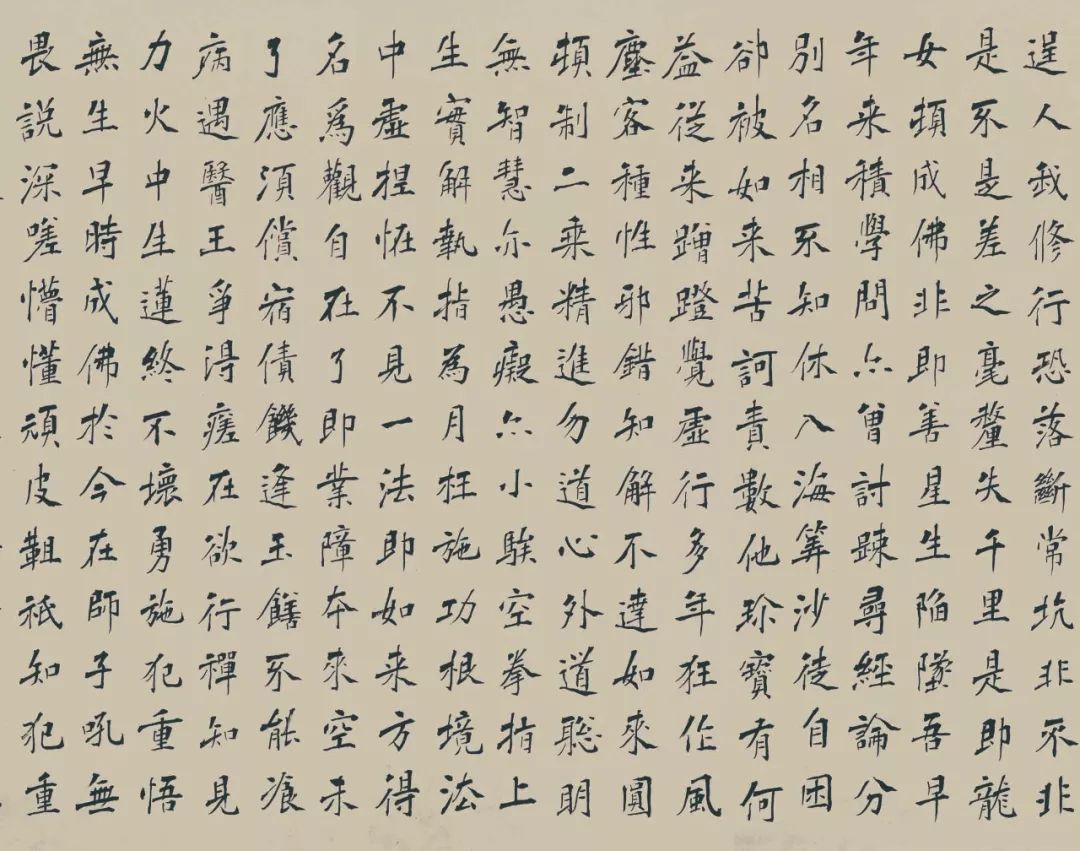 逞人我修行恐落斷常坑非不非
是不是差之毫釐失千里是即龍
女頓成佛非即善星生陷墜吾早
年来積學問亦曾討踈尋經論分
別名相不知休入海筭沙徒自困
卻被如来苦訶責數他珎寶有何
益從来蹭蹬覺虛行多年狂作風
塵客種性邪錯知解不達如來圓
頓制二乘精進勿道心外道聡明
無智慧亦愚癡亦小騃空拳指上
生實解執指為月枉施功根境法
中虛捏怪不見一法即如来方得
名爲觀自在了即業障本來空未
了應須償宿債饑逢王饍不能飡
病遇醫王爭得瘥在欲行禪知見
力火中生蓮終不壞勇施犯重悟
無生早時成佛於今在師子吼無
畏説深嗟懵懂頑皮靼祇知犯重